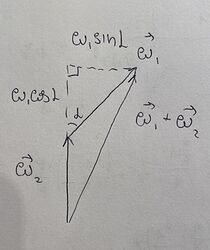 ω₁ sin L
ω⃗₁
ω₁ cos L
α
ω⃗₁ + ω⃗₂
ω⃗₂